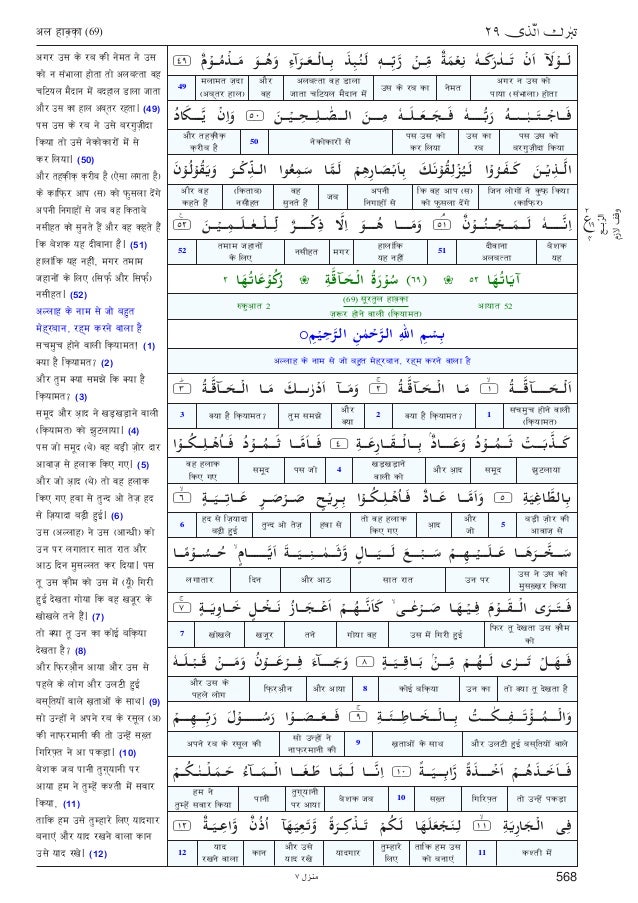 अल हाक़्क़ा (69)
تبٰرك الّذى ٢٩
अगर उस के रब की नेमत ने उस
को न संभाला होता तो अलबत्ता वह
चटियल मैदान में बदहाल डाला जाता
और उस का हाल अब्तर रहता। (49)
पस उस के रब ने उसे बरगुज़ीदा
किया तो उसे नेकोकारों में से
कर लिया। (50)
और तहक़ीक़ क़रीब है (ऐसा लगता है)
के काफ़िर आप (स) को फुसला देंगे
अपनी निगाहों से जब वह किताबे
नसीहत को सुनते हैं और वह कहते हैं
कि बेशक यह दीवाना है। (51)
हालांकि यह नहीं, मगर तमाम
जहानों के लिए (सिर्फ़ और सिर्फ़)
नसीहत। (52)
अल्लाह के नाम से जो बहुत
मेहरबान, रहम करने वाला है
सचमुच होने वाली क़ियामत! (1)
क्या है क़ियामत? (2)
और तुम क्या समझे कि क्या है
क़ियामत? (3)
समूद और आ़द ने खड़खड़ाने वाली
(क़ियामत) को झुटलाया। (4)
पस जो समूद (थे) वह बड़ी ज़ोर दार
आवाज़ से हलाक किए गए। (5)
और जो आ़द (थे) तो वह हलाक
किए गए हवा से तुन्द ओ तेज़ हद
से ज़ियादा बढ़ी हुई। (6)
उस (अल्लाह) ने उस (आन्धी) को
उन पर लगातार सात रात और
आठ दिन मुसल्लत कर दिया। पस
तू उस क़ौम को उस में (यूँ) गिरी
हुई देखता गोया कि वह खजूर के
खोखले तने हैं। (7)
तो क्या तू उन का कोई बक़िया
देखता है? (8)
और फ़िरऔ़न आया और उस से
पहले के लोग और उलटी हुई
बस्तियों वाले ख़ताओं के साथ। (9)
सो उन्हों ने अपने रब के रसूल (अ)
की नाफ़रमानी की तो उन्हें सख़्त
गिरिफ़्त ने आ पकड़ा। (10)
बेशक जब पानी तुग़यानी पर
आया हम ने तुम्हें कश्ती में सवार
किया, (11)
ताकि हम उसे तुम्हारे लिए यादगार
बनाएं और याद रखने वाला कान
उसे याद रखे। (12)
لَوْلَآ اَنْ تَدٰرَكَهٗ نِعْمَةٌ مِّنْ رَّبِّهٖ لَنُبِذَ بِالْعَرَآءِ وَهُوَ مَذْمُوْمٌ ٤٩
अगर न उस को | नेमत | उस के रब का | अलबत्ता वह डाला | और | मलामत ज़दा | 49
पाया (संभाला) होता | जाता चटियल मैदान में | वह | (अब्तर हाल)
فَاجْتَبٰهُ رَبُّهٗ فَجَعَلَهٗ مِنَ الصّٰلِحِيْنَ ٥٠ وَاِنْ يَّكَادُ
पस उस को | उस का | पस उस को | नेकोकारों से | 50 | और तहक़ीक़
बरगुज़ीदा किया | रब | कर लिया | क़रीब है
الَّذِيْنَ كَفَرُوْا لَيُزْلِقُوْنَكَ بِاَبْصَارِهِمْ لَمَّا سَمِعُوا الذِّكْرَ وَيَقُوْلُوْنَ
जिन लोगों ने कुफ़्र किया | कि वह आप (स) | अपनी | जब | वह | (किताब) | और वह
(काफ़िर) | को फुसला देंगे | निगाहों से | सुनते हैं | नसीहत | कहते हैं
اِنَّهٗ لَمَجْنُوْنٌ ٥١ وَمَا هُوَ اِلَّا ذِكْرٌ لِّلْعٰلَمِيْنَ ٥٢
बेशक | दीवाना | 51 | हालांकि | मगर | नसीहत | तमाम जहानों | 52
यह | अलबत्ता | यह नहीं | के लिए
اٰيَاتُهَا ٥٢ ❀ (٦٩) سُوْرَةُ الْحَآقَّةِ ❀ رُكُوْعَاتُهَا ٢
आयात 52 | (69) सूरतुल हाक़्क़ा | रुकुआ़त 2
ज़रूर होने वाली (क़ियामत)
بِسْمِ اللهِ الرَّحْمٰنِ الرَّحِيْمِ
अल्लाह के नाम से जो बहुत मेहरबान, रहम करने वाला है
اَلْحَآقَّةُ ١ مَا الْحَآقَّةُ ٢ وَمَآ اَدْرٰىكَ مَا الْحَآقَّةُ ٣
सचमुच होने वाली | 1 | क्या है क़ियामत? | 2 | और | तुम समझे | क्या है क़ियामत? | 3
(क़ियामत) | क्या
كَذَّبَتْ ثَمُوْدُ وَعَادٌۢ بِالْقَارِعَةِ ٤ فَاَمَّا ثَمُوْدُ فَاُهْلِكُوْا
झुटलाया | समूद | और आ़द | खड़खड़ाने | 4 | पस जो | समूद | वह हलाक
वाली को | किए गए
بِالطَّاغِيَةِ ٥ وَاَمَّا عَادٌ فَاُهْلِكُوْا بِرِيْحٍ صَرْصَرٍ عَاتِيَةٍ ٦
बड़ी ज़ोर की | 5 | और | आ़द | तो वह हलाक | हवा से | तुन्द ओ तेज़ | हद से ज़ियादा | 6
आवाज़ से | जो | किए गए | बढ़ी हुई
سَخَّرَهَا عَلَيْهِمْ سَبْعَ لَيَالٍ وَّثَمٰنِيَةَ اَيَّامٍ حُسُوْمًا
उस ने उस को | उन पर | सात रात | और आठ | दिन | लगातार
मुसख़्ख़र किया
فَتَرَى الْقَوْمَ فِيْهَا صَرْعٰى كَاَنَّهُمْ اَعْجَازُ نَخْلٍ خَاوِيَةٍ ٧
फिर तू देखता उस क़ौम | उस में गिरी हुई | गोया वह | तने | खजूर | खोखले | 7
को
فَهَلْ تَرٰى لَهُمْ مِّنْۢ بَاقِيَةٍ ٨ وَجَآءَ فِرْعَوْنُ وَمَنْ قَبْلَهٗ
तो क्या तू देखता है | उन का | कोई बक़िया | 8 | और आया | फ़िरऔ़न | और उस के
पहले लोग
وَالْمُؤْتَفِكٰتُ بِالْخَاطِئَةِ ٩ فَعَصَوْا رَسُوْلَ رَبِّهِمْ
और उलटी हुई बस्तियों वाले | ख़ताओं के साथ | 9 | सो उन्हों ने | अपने रब के रसूल की
नाफ़रमानी की
فَاَخَذَهُمْ اَخْذَةً رَّابِيَةً ١٠ اِنَّا لَمَّا طَغَا الْمَآءُ حَمَلْنٰكُمْ
तो उन्हें पकड़ा | गिरिफ़्त | सख़्त | 10 | बेशक जब | तुग़यानी | पानी | हम ने
पर आया | तुम्हें सवार किया
فِى الْجَارِيَةِ ١١ لِنَجْعَلَهَا لَكُمْ تَذْكِرَةً وَّتَعِيَهَآ اُذُنٌ وَّاعِيَةٌ ١٢
कश्ती में | 11 | ताकि हम उस | तुम्हारे | यादगार | और उसे | कान | याद | 12
को बनाएं | लिए | याद रखे | रखने वाला
منزل ٧
568